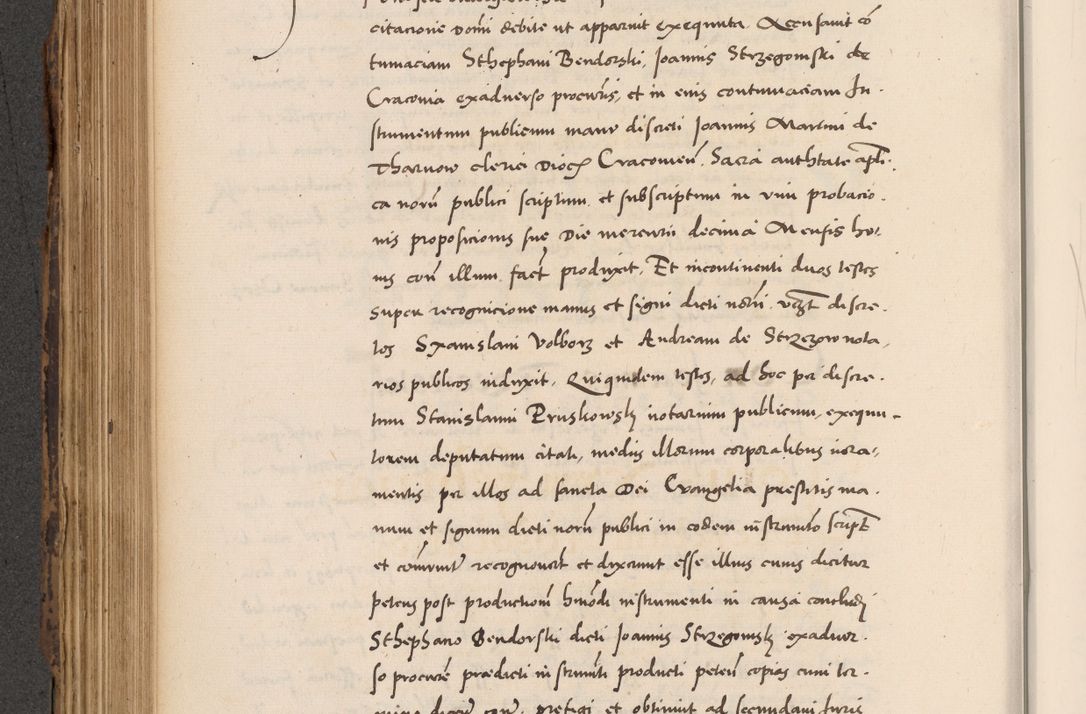 citacione domini debite ut apparuit exequuta. Accusavit co
tumaciam Sthephani Bendorski, Joannis Strzegomski de
Craconia exadverso procuris, et in eius contumaciam In-
strumentum publicum manu discreti Joannis Martini de
Tharnow clerici dioc Craconień. Sacra authtate apli-
ca norii publici scriptum et subscriptum in vim probacio-
nis proposicionis sue die mercurii decima Mensis ho-
nis coń illum fact produxit, Et incontinenti duos testes
super recognicione manus et signi dicti norii vczt discre-
tos Stanislaui Volborz et Andream de Strzezow nota-
rios publicos induxit. Quiquidem testes, ad hoc per discre-
tum Stanislaum Pruskowskj notarium publicum, exequu-
torem deputatum citati, mediis illorum corporalibus iura-
mentis per illos ad sancta Dei Evangelia prestitis ma-
num et signum dicti norii publici in eodem instrumto script
et recognouert et dixerunt esse illius cuius dicitur
petens post productiom hmodi instrumenti in causa concludi
Sthephano Bendorski dicti Joannis Strzegomskj exadver-
so procure praedicti instrumti producti peteń copias cum ter-
prefigi et obtinuit ad secundam Juris